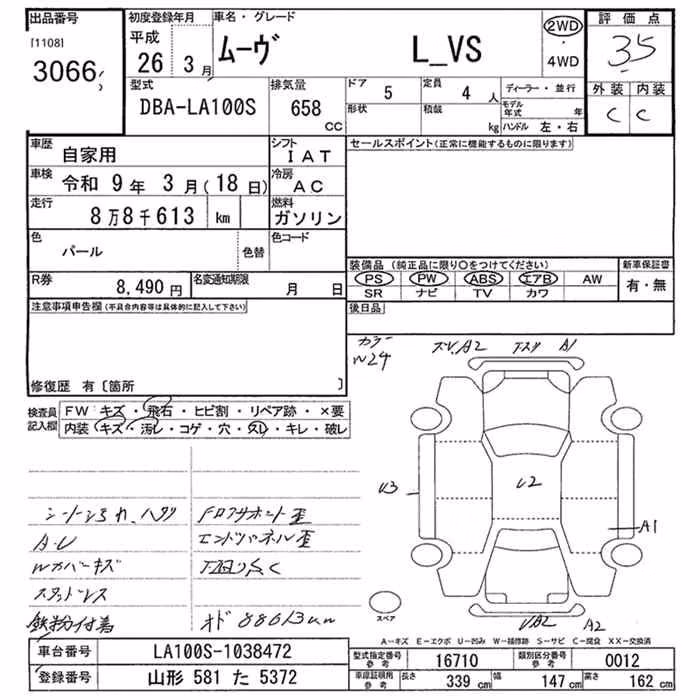 出品番号 初度登録年月 車名・グレード 評価点
[1108] 3066 平成 26 3月 ムーヴ L_VS 2WD・4WD 3.5
型式 排気量 ドア 定員 ディーラー・並行 外装 内装
DBA-LA100S 658 CC 5 4人 C C
形状 積載 kg モデル年式 年 ハンドル 左・右
車歴 自家用 シフト IAT セールスポイント(正常に機能するものに限ります)
車検 令和 9年 3月(18日) 冷房 AC
走行 8万8千613 km 燃料 ガソリン
色 パール 色替 色コード
装備品 (純正品に限り○をつけてください) 新車保証書
PS PW ABS エアB AW 有・無
SR ナビ TV カワ
R券 8,490円 名変通知期限 月 日
注意事項申告欄(不具合内容等は具体的に記入して下さい) 後日品
修復歴 有〔箇所 〕
カラー W24 A2 A1
検査員記入欄 FW キズ・飛石・ヒビ割・リペア跡・×要
内装 キズ・汚レ・コゲ・穴・スレ・キレ・破レ
U3 U2 A1
エンドパネル歪
Wカバーキズ
スタッドレス
鉄粉付着 オド 88613km
スペア A2
A-キズ E-エクボ U-凹み W-補修跡 S-サビ C-腐食 XX-交換済
車台番号 LA100S-1038472 型式指定番号 参考 16710 類別区分番号 参考 0012
登録番号 山形 581 た 5372 車庫証明用 参考 長さ 339cm 幅 147cm 高さ 162cm